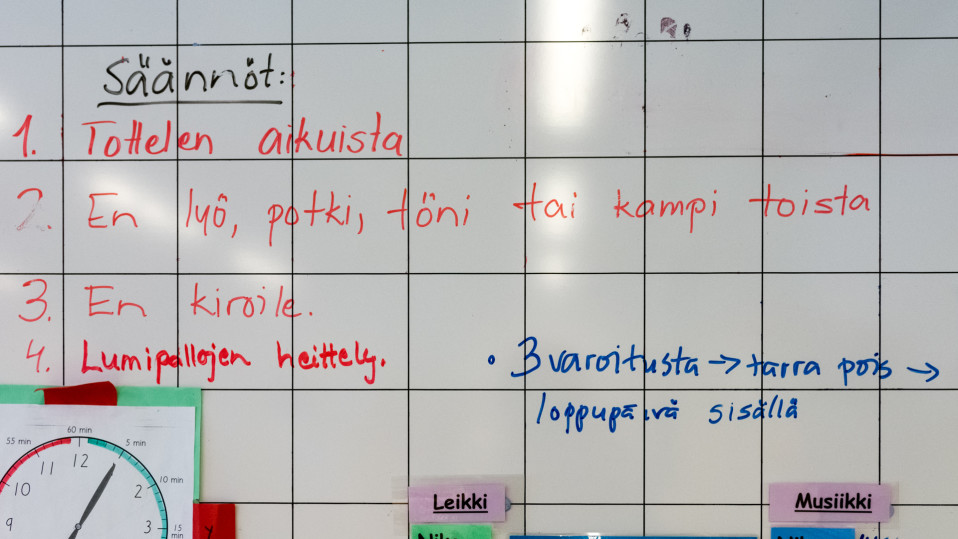 Säännöt:
1. Tottelen aikuista
2. En lyö, potki, töni tai kampi toista
3. En kiroile.
4. Lumipallojen heittely.
• 3 varoitusta → tarra pois →
loppupäivä sisällä
55 min
60 min
5 min
10 min
15 min
11
12
10
2
9
3
Leikki
Musiikki